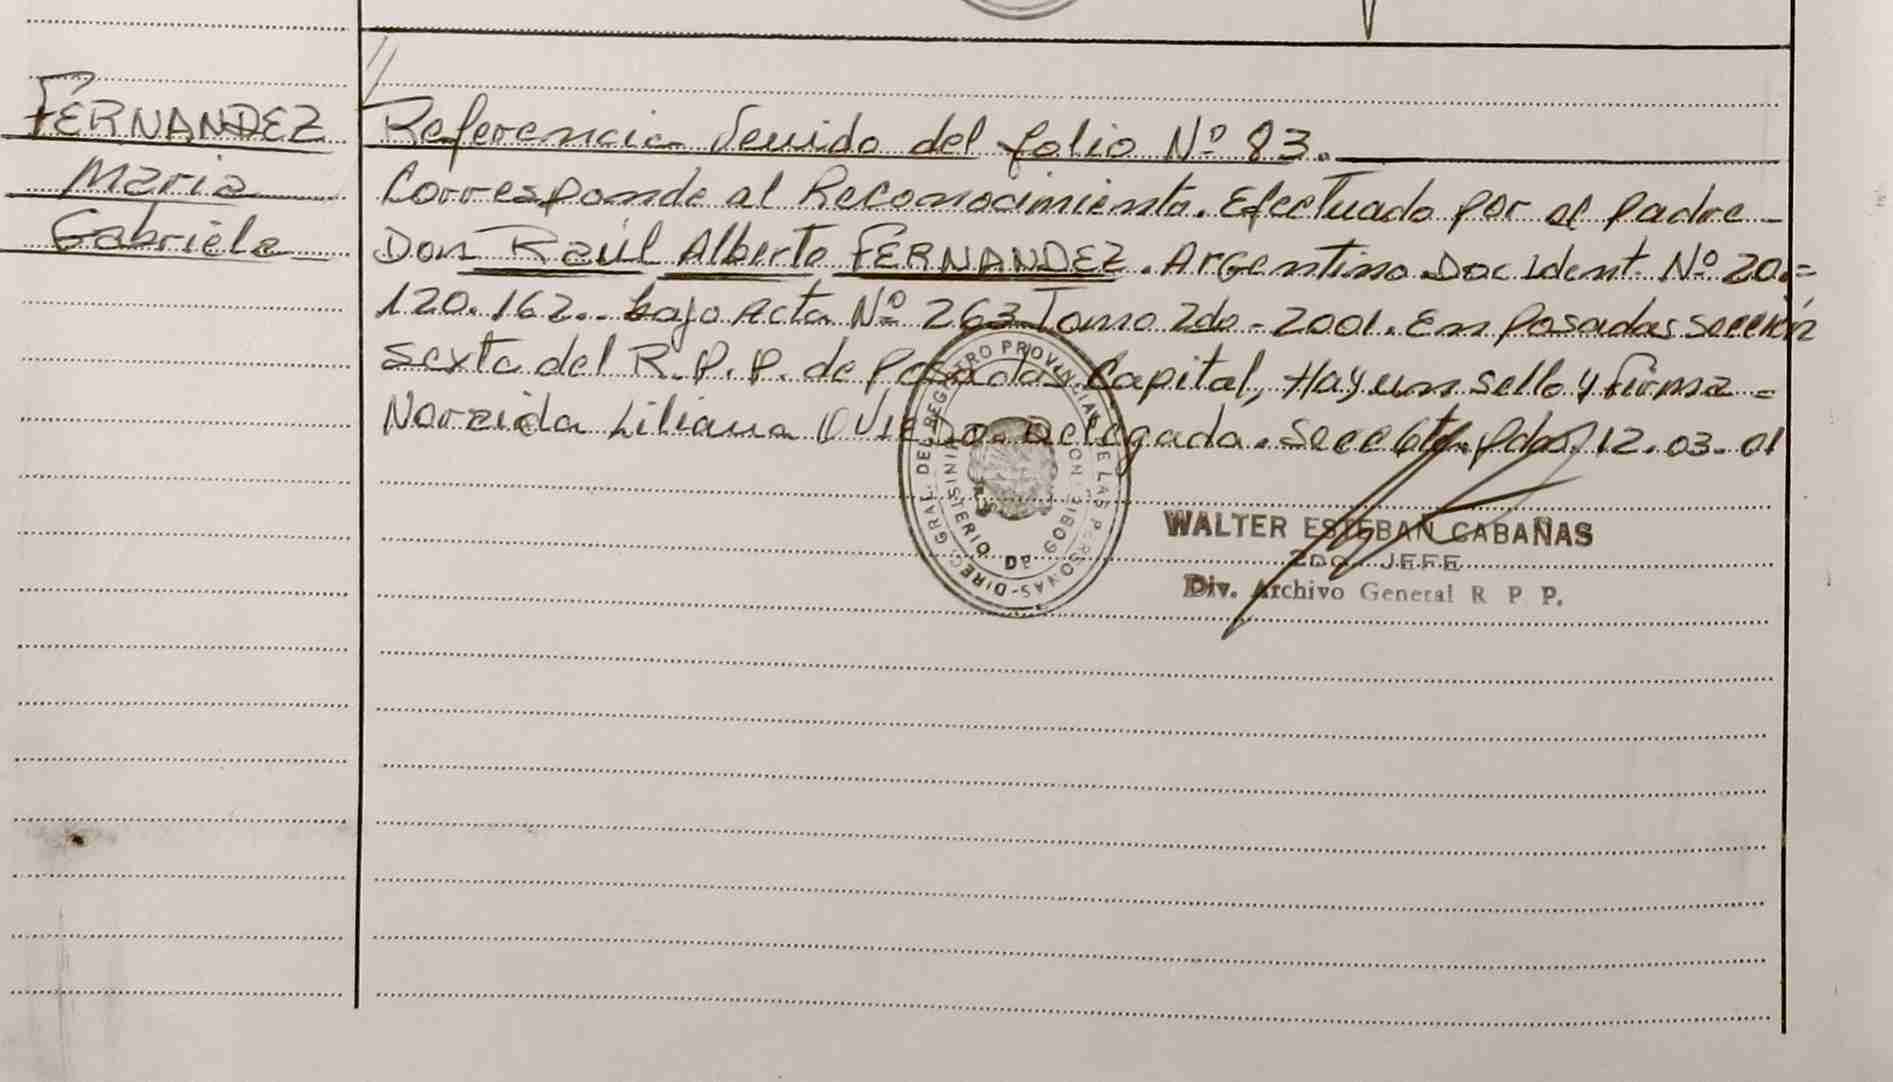 FERNANDEZ
Maria
Gabriela
Referencia Venido del folio Nº 83.
Corresponde al Reconocimiento. Efectuado por el padre
Don Raúl Alberto FERNANDEZ. Argentino. Doc ident Nº 20.=
120.162.. bajo Acta Nº 263 Tomo 2do - 2001. En Posadas sección
sexta del R.P.P. de Posadas Capital, Hay un sello y firma =
Liliana OVIEDO. Delegada. Secc 6ta. Pdas, 12.03.01
DIREC. GRAL. DEL REGISTRO PROVINCIAL DE LAS PERSONAS
MINISTERIO DE GOB
WALTER ESTEBAN CABAÑAS
2DO JEFE
Div. Archivo General R P P.